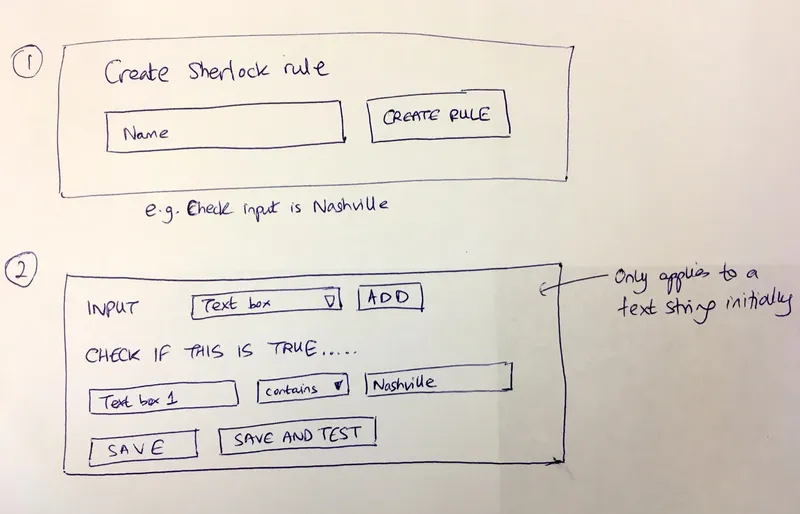 1
Create Sherlock rule
Name
CREATE RULE
e.g. Check input is Nashville
2
INPUT
Text box
ADD
Only applies to a
text string initially
CHECK IF THIS IS TRUE.....
Text box 1
contains
Nashville
SAVE
SAVE AND TEST